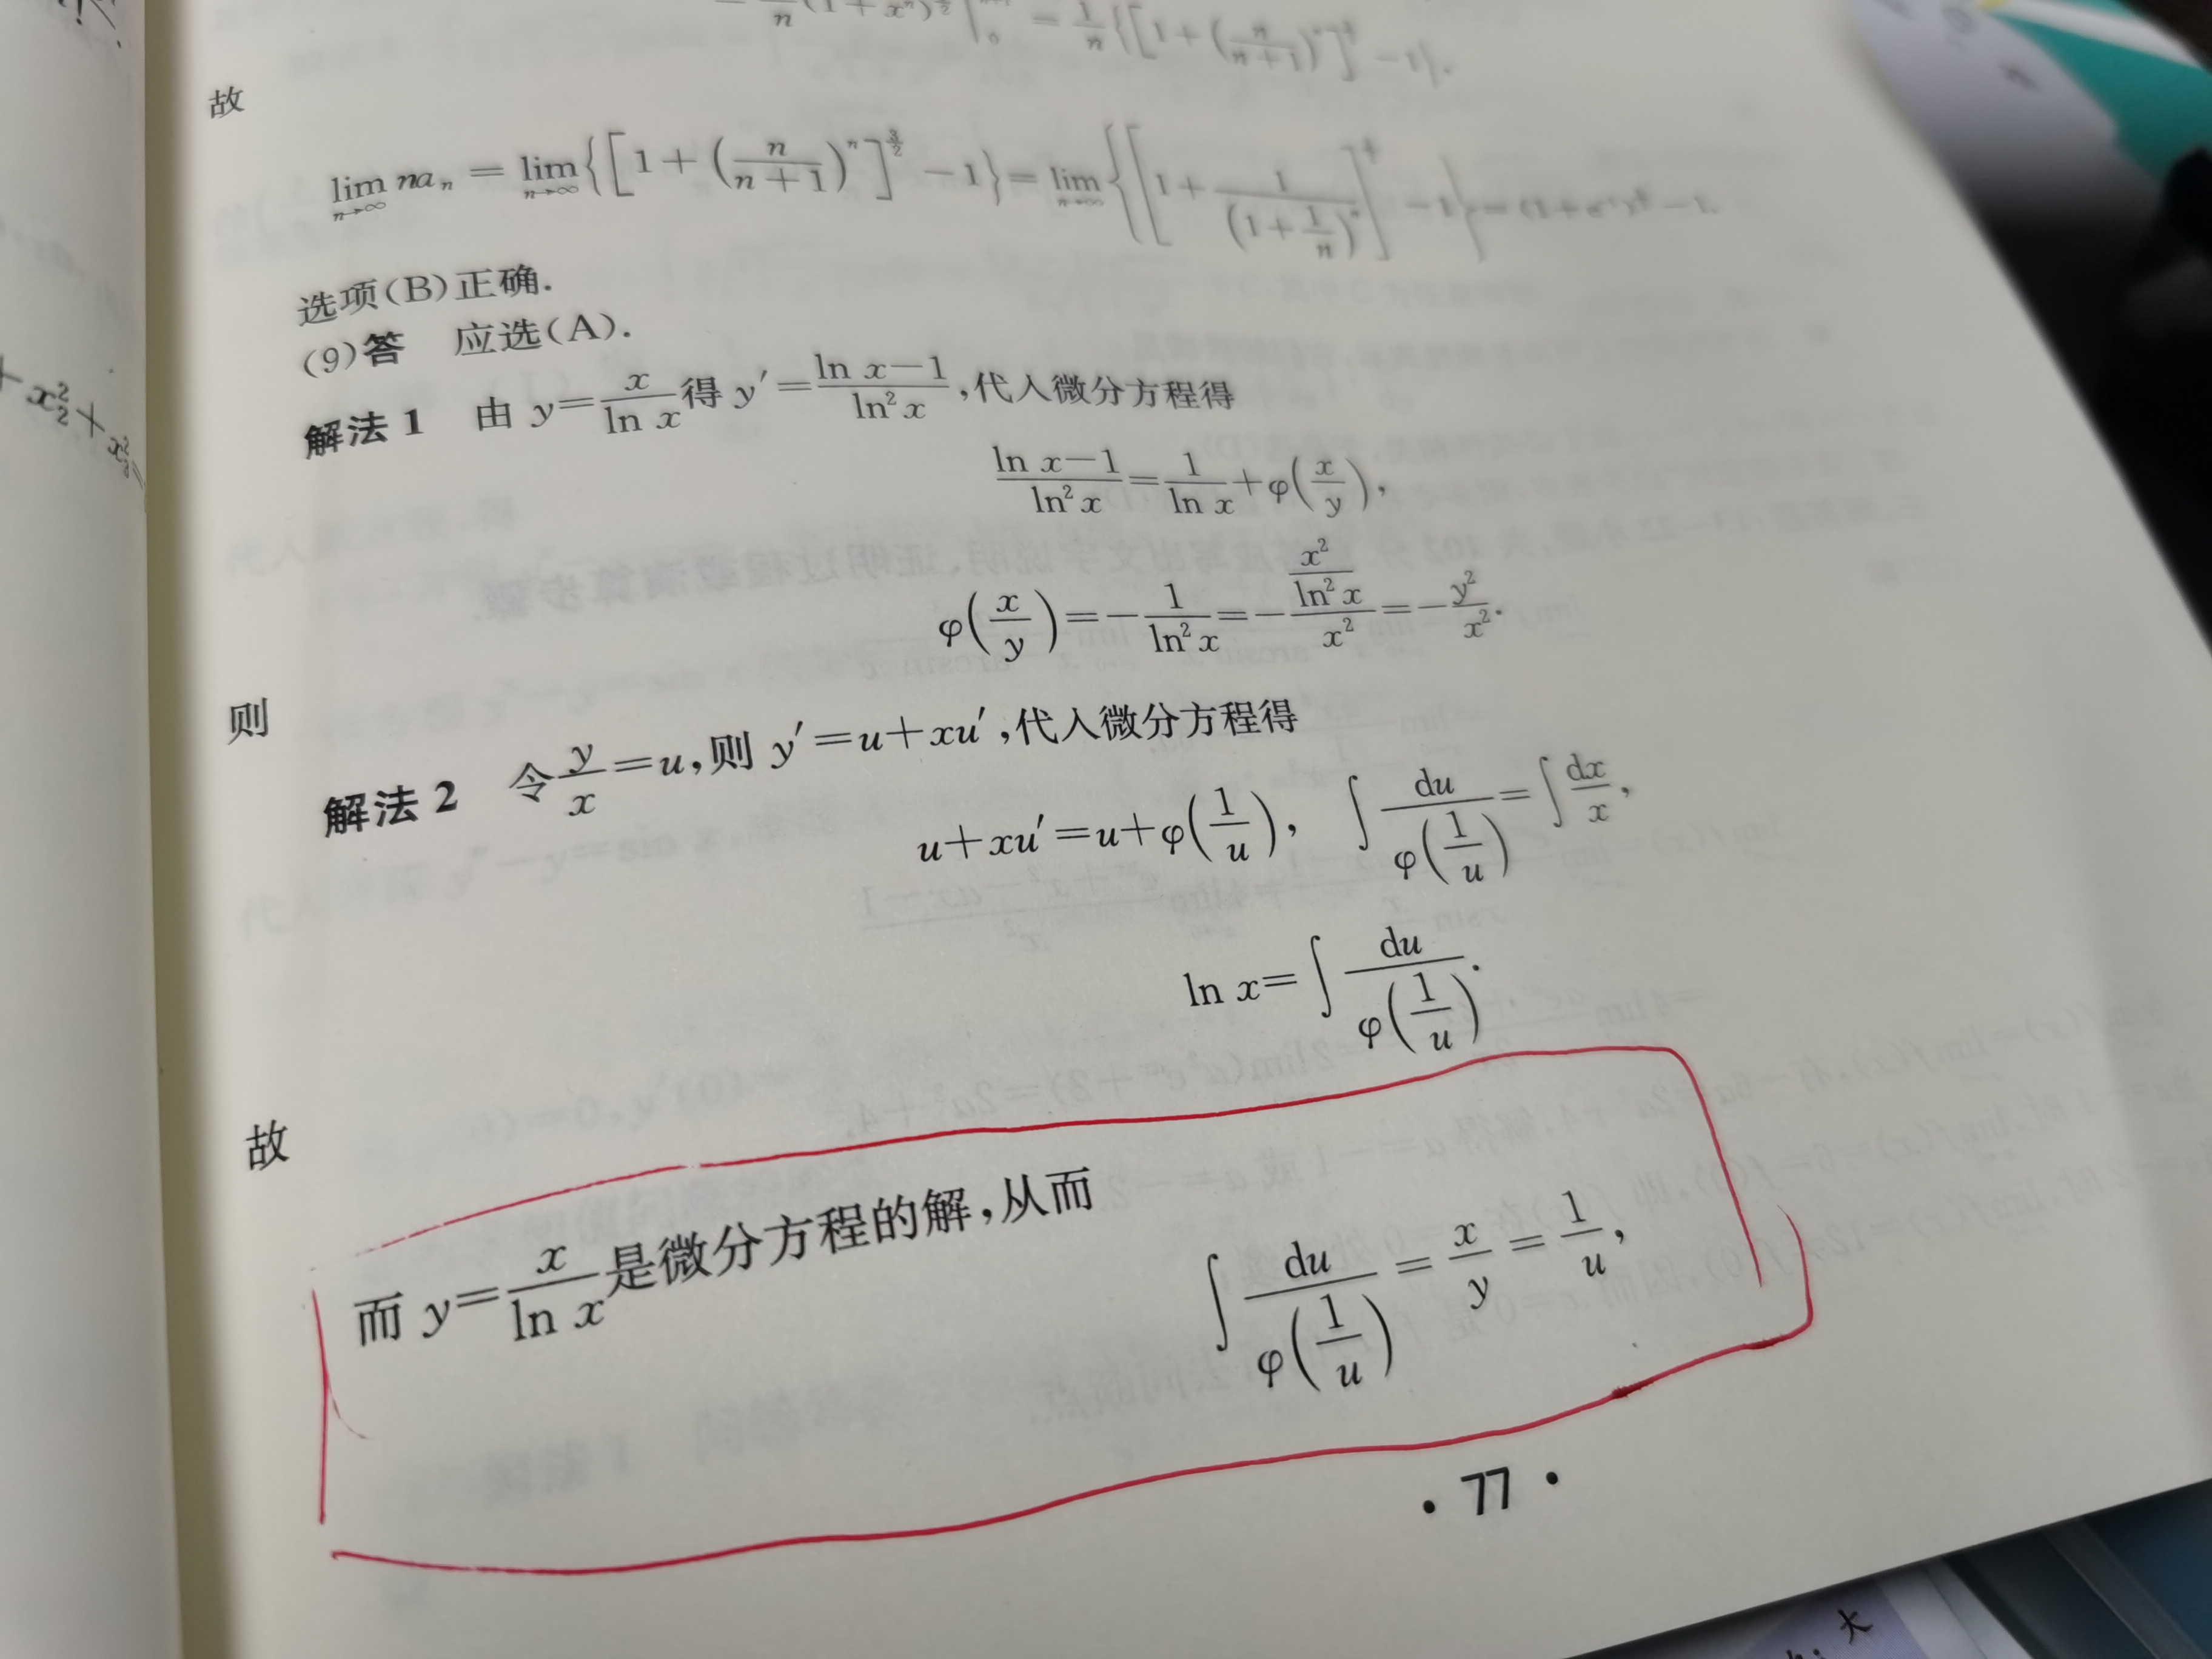 故
lim_{n→∞} na_n = lim_{n→∞}{[1+(n/(n+1))^n]^{3/2} −1} = lim_{n→∞}{[1+1/(1+1/n)^n]
选项(B)正确.
(9)答 应选(A).
解法1 由 y=x/ln x 得 y′=(ln x−1)/ln² x,代入微分方程得
(ln x−1)/ln² x=1/ln x+φ(x/y),
φ(x/y)=−1/ln² x=−(x²/ln² x)/x²=−y²/x².
则
解法2 令 y/x=u,则 y′=u+xu′,代入微分方程得
u+xu′=u+φ(1/u), ∫du/φ(1/u)=∫dx/x,
ln x=∫du/φ(1/u).
故
而 y=x/ln x 是微分方程的解,从而
∫du/φ(1/u)=x/y=1/u,
· 77 ·